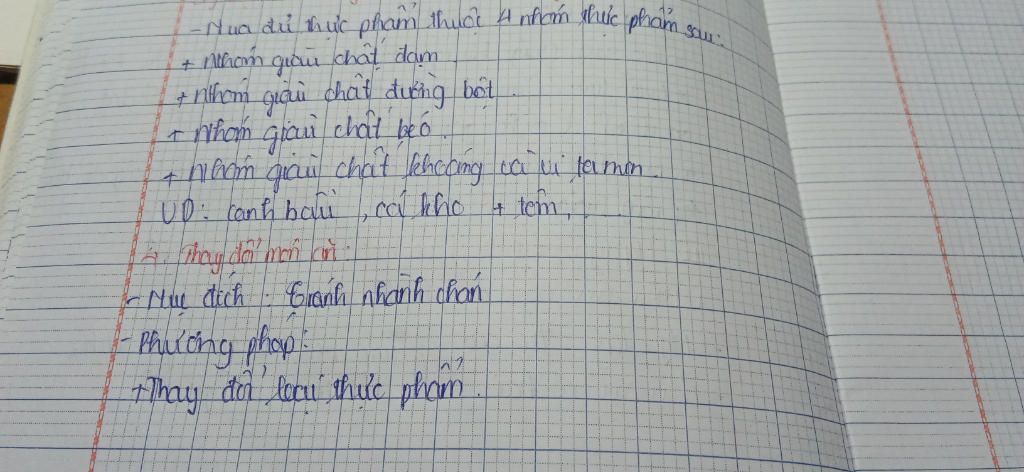 - Mua đủ thực phẩm thuộc 4 nhóm thực phẩm sau:
+ Nhóm giàu chất đạm
+ Nhóm giàu chất đường bột.
+ Nhóm giàu chất béo.
+ Nhóm giàu chất khoáng và vi ta min.
VD: canh bầu, cá kho + tôm,
4. Thay đổi món ăn:
- Mục đích: tránh nhành chán
- Phương pháp:
+ Thay đổi loại thực phẩm.